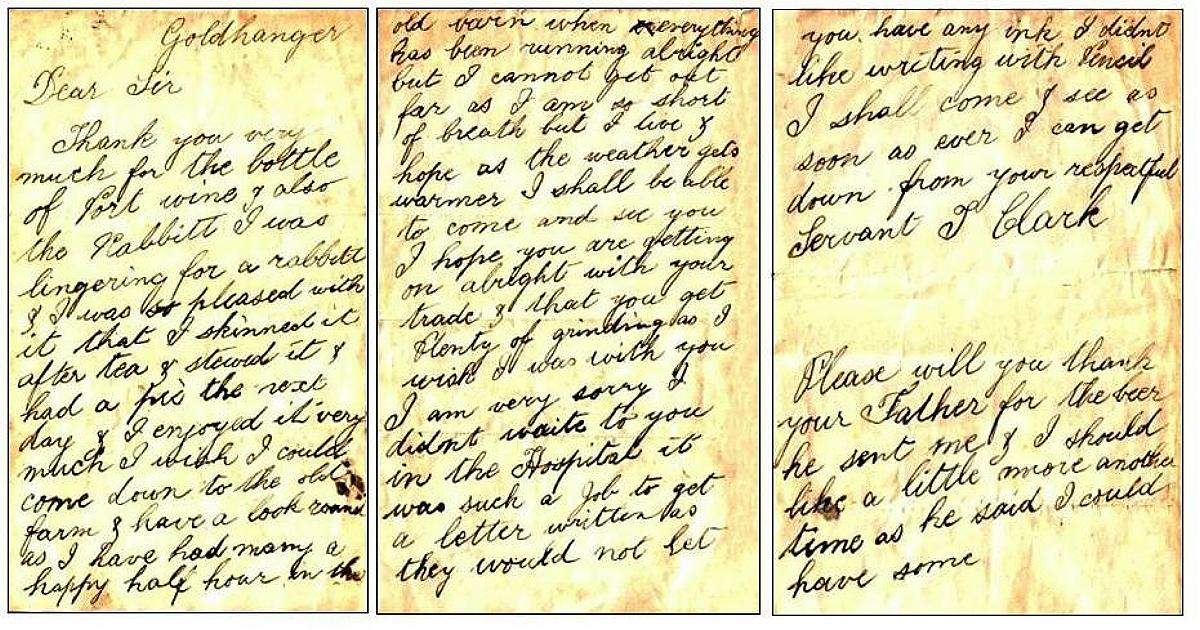 Goldhanger
Dear Sir
Thank you very
much for the bottle
of Port wine & also
the Rabbitt I was
lingering for a rabbitt
& I was so pleased with
it that I skinned it
after tea & stewed it &
had a pie the next
day & I enjoyed it very
much I wish I could
come down to the old
farm & have a look round
as I have had many a
happy half hour in the
old barn when everything
has been running alright
but I cannot get out
far as I am so short
of breath but I live &
hope as the weather gets
warmer I shall be able
to come and see you
I hope you are getting
on alright with your
trade & that you get
Plenty of grinding as I
wish I was with you
I am very sorry I
didnt waite to you
in the Hospital it
was such a Job to get
a letter written as
they would not let
you have any ink I didnt
like writing with Pencil
I shall come & see as
soon as ever I can get
down from your respectful
Servant T Clark
Please will you thank
your Father for the beer
he sent me & I should
like a little more another
time as he said I could
have some